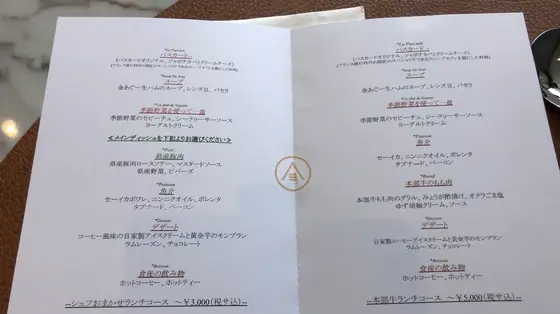 *La Pascade
パスカード
(パスカードオリジナル、ジャガチカバとクリームチーズ)
*Soup De Jour
スープ
金あぐー生ハムのスープ、レンズ豆、パセリ
季節野菜を使って一皿
季節野菜のセビーチェ、シークヮーサーソース
ヨーグルトクリーム
≪メインディッシュを下記よりお選びください≫
*Porc
県産豚肉
県産豚肉ロースソテー、マスタードソース
県産野菜、ピパーズ
*Poisson
魚介
セーイカポワレ、ニンニクオイル、ポレンタ
タプナード、ベーコン
*Dessert
デザート
コーヒー風味の自家製アイスクリームと黄金芋のモンブラン
ラムレーズン、チョコレート
*Boisson
食後の飲み物
ホットコーヒー、ホットティー
--シェフおまかせランチコース ～￥3,000(税サ込)--
*La Pascade
パスカード
*Soup De Jour
スープ
金あぐー生ハムのスープ、レンズ豆、パセリ
季節野菜を使って一皿
季節野菜のセビーチェ、シークヮーサーソース
ヨーグルトクリーム
*Poisson
魚介
セーイカ、ニンニクオイル、ポレンタ
タプナード、ベーコン
*Boeuf
本部牛のもも肉
本部牛もも肉のグリル、みょうが酢漬け、オクラごま塩
ゆず胡椒クリーム、ソース
*Dessert
デザート
自家製コーヒーアイスクリームと黄金芋のモンブラン
ラムレーズン、チョコレート
*Boisson
食後の飲み物
ホットコーヒー、ホットティー
--本部牛ランチコース ～￥5,000(税サ込)--